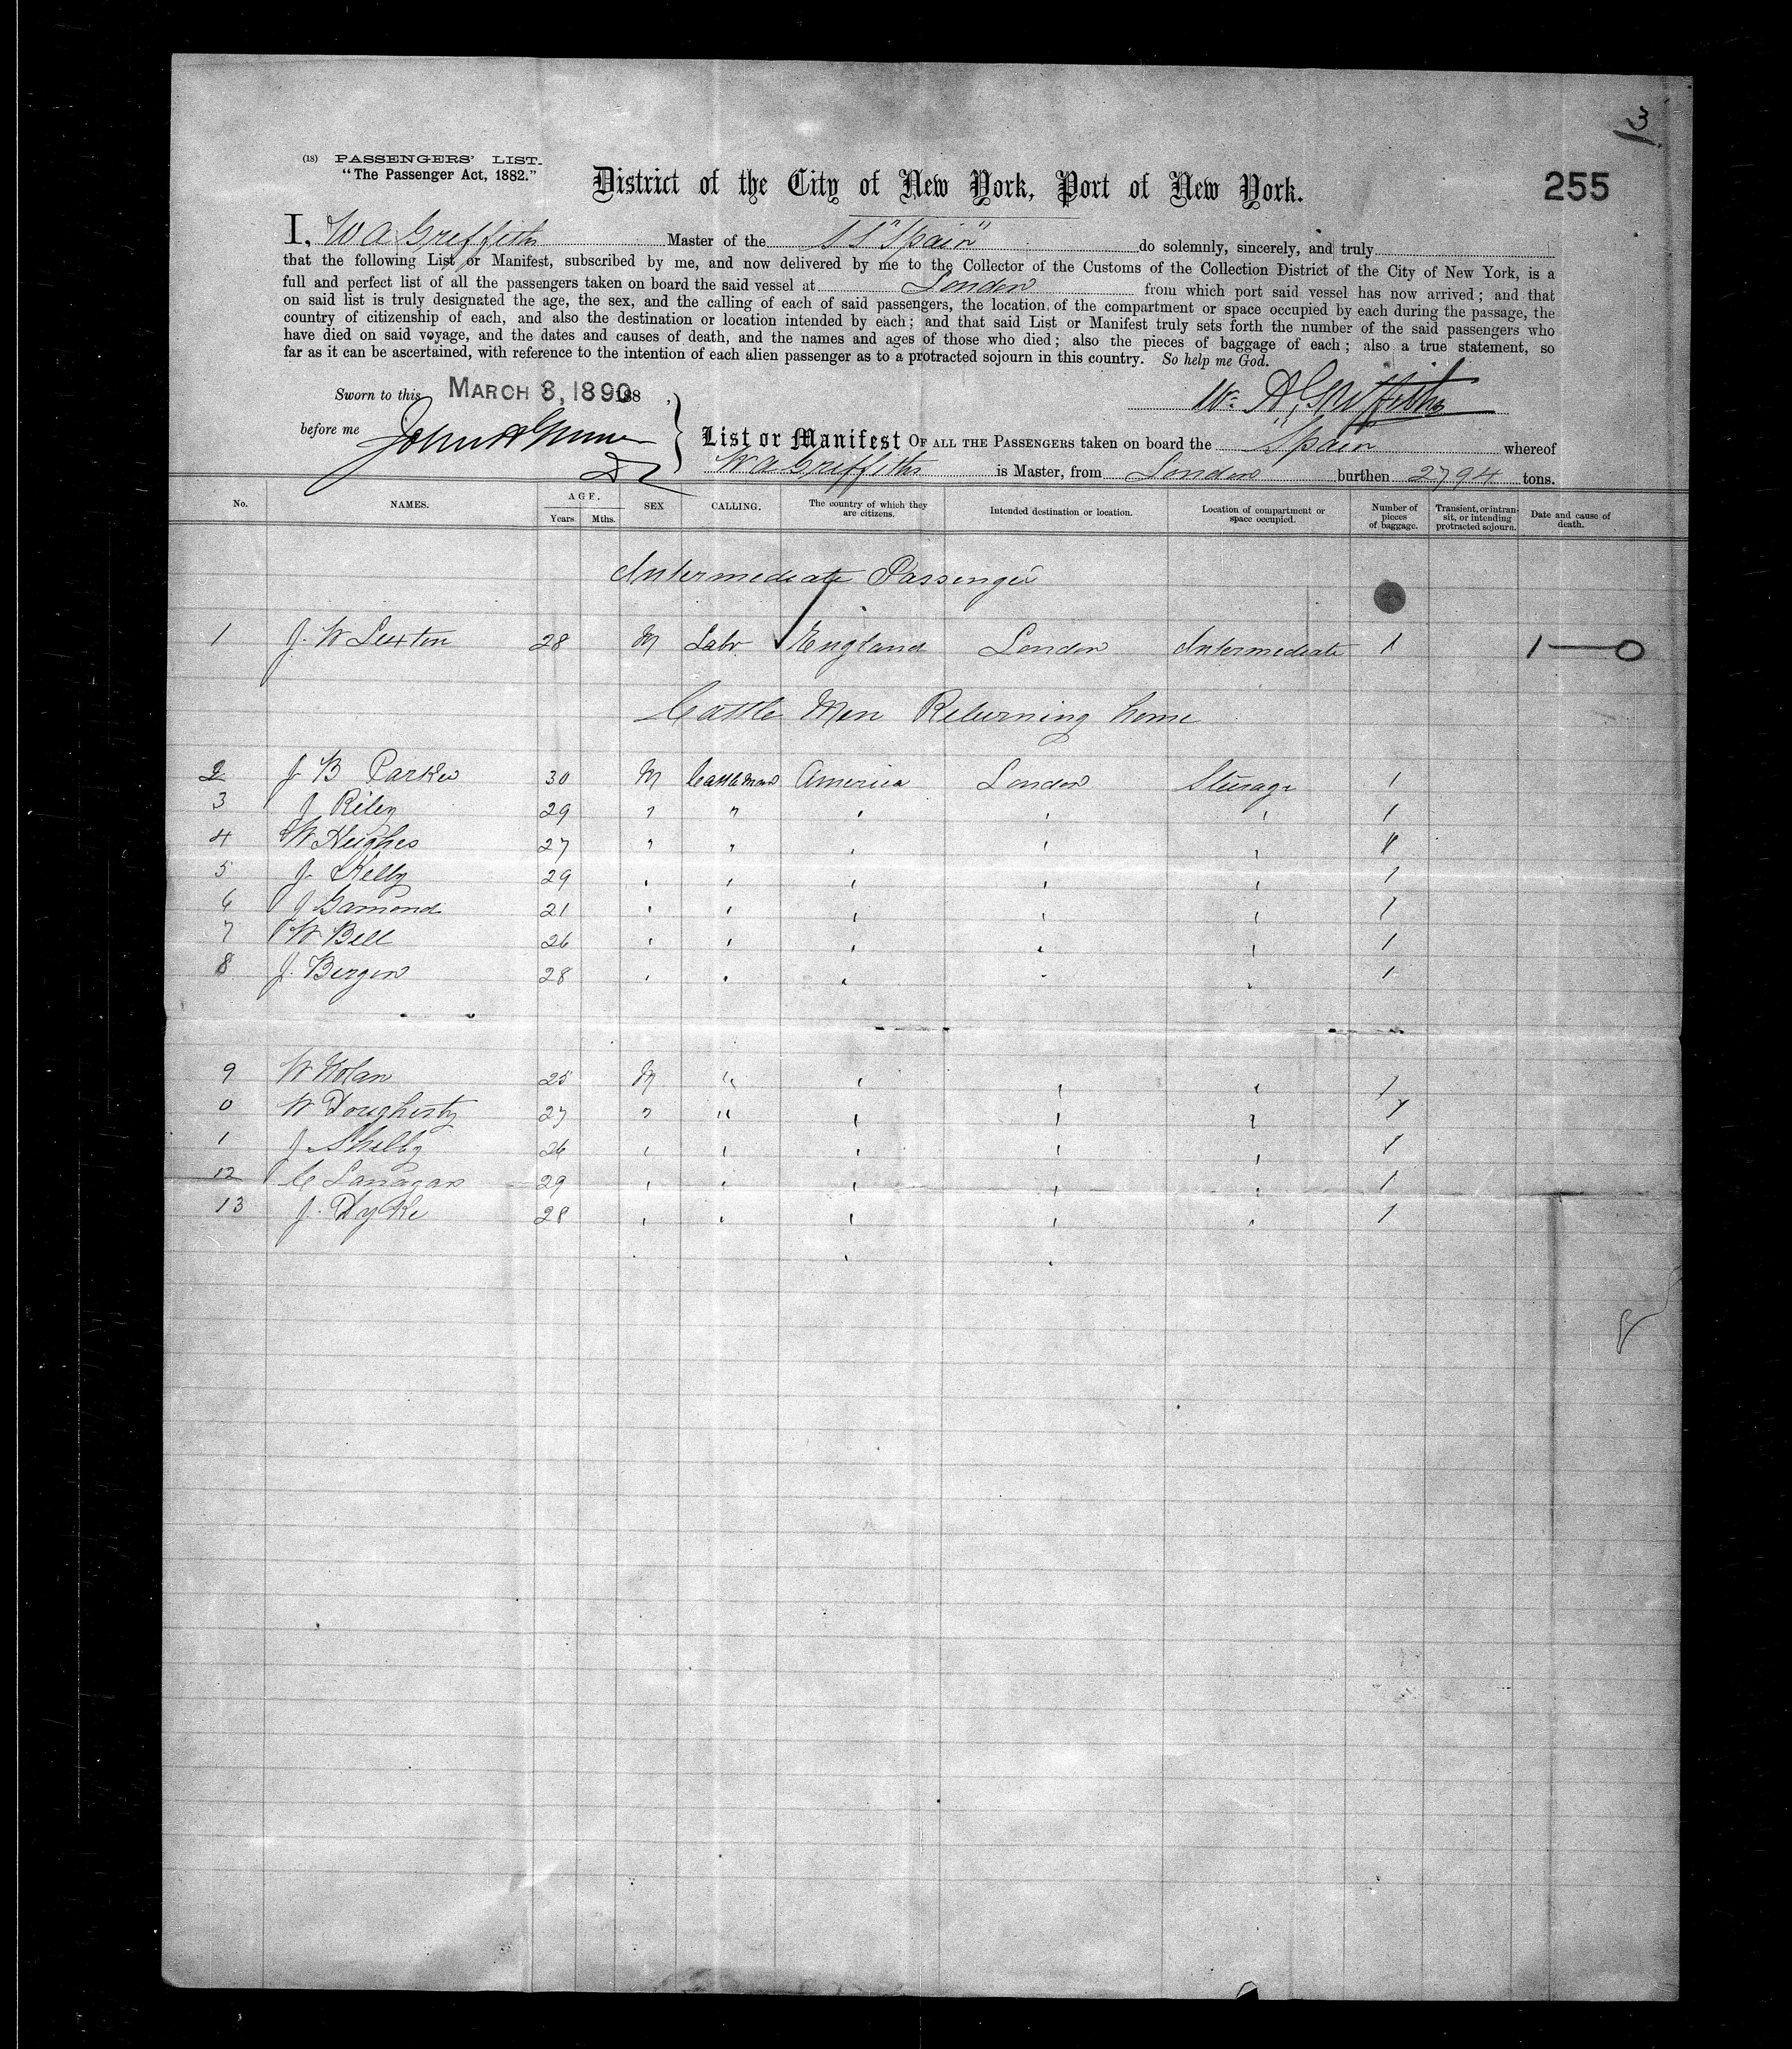 3
(18) PASSENGERS' LIST.
"The Passenger Act, 1882."
District of the City of New York, Port of New York.
255
I, W A Griffiths Master of the S S "Spain" do solemnly, sincerely, and truly
that the following List or Manifest, subscribed by me, and now delivered by me to the Collector of the Customs of the Collection District of the City of New York, is a
full and perfect list of all the passengers taken on board the said vessel at London from which port said vessel has now arrived; and that
on said list is truly designated the age, the sex, and the calling of each of said passengers, the location of the compartment or space occupied by each during the passage, the
country of citizenship of each, and also the destination or location intended by each; and that said List or Manifest truly sets forth the number of the said passengers who
have died on said voyage, and the dates and causes of death, and the names and ages of those who died; also the pieces of baggage of each; also a true statement, so
far as it can be ascertained, with reference to the intention of each alien passenger as to a protracted sojourn in this country. So help me God.
Sworn to this MARCH 3, 1890 188 ,
Wm A Griffiths
before me
List or Manifest OF ALL THE PASSENGERS taken on board the "Spain" whereof
W A Griffiths is Master, from London burthen 2794 tons.
No. NAMES. AGE. Years. Mths. SEX CALLING. The country of which they are citizens. Intended destination or location. Location of compartment or space occupied. Number of pieces of baggage. Transient, or intransit, or intending protracted sojourn. Date and cause of death.
Intermediate Passenger
1 J. W Luxton 28 M Labr England London Intermediate 1 1—0
Cattle Men Returning home
2 J B Parker 30 M Cattleman America London Steerage 1
3 J Riley 29 " " " " " 1
4 W Hughes 27 " " " " " 1
5 J. Kelly 29 " " " " " 1
6 J Gamond 21 " " " " " 1
7 W Bell 26 " " " " " 1
8 J. Bergen 28 " " " " " 1
9 W Nolan 25 M " " " " 1
0 W Dougherty 27 " " " " " 1
1 J Shelby 26 " " " " " 1
12 C Lanagan 29 " " " " " 1
13 J. Dyke 28 " " " " " 1